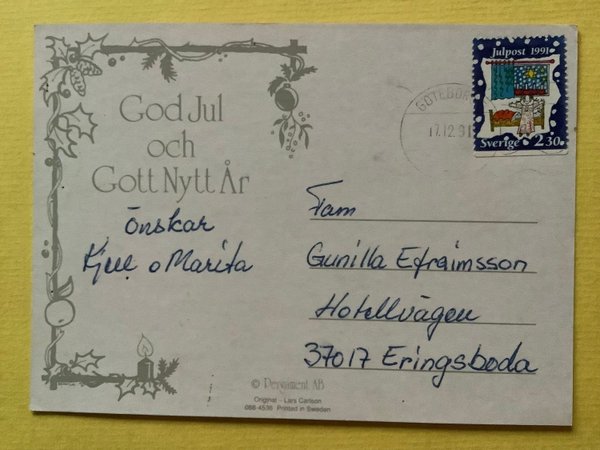 God Jul
och
Gott Nytt År
Önskar
Kjell o Marita
Julpost 1991
Sverige 2.30
GÖTEBORG
17.12.91
Fam
Gunilla Efraimsson
Hotellvägen
37017 Eringsboda
© Pergament AB
Original - Lars Carlson
088-4536 Printed in Sweden